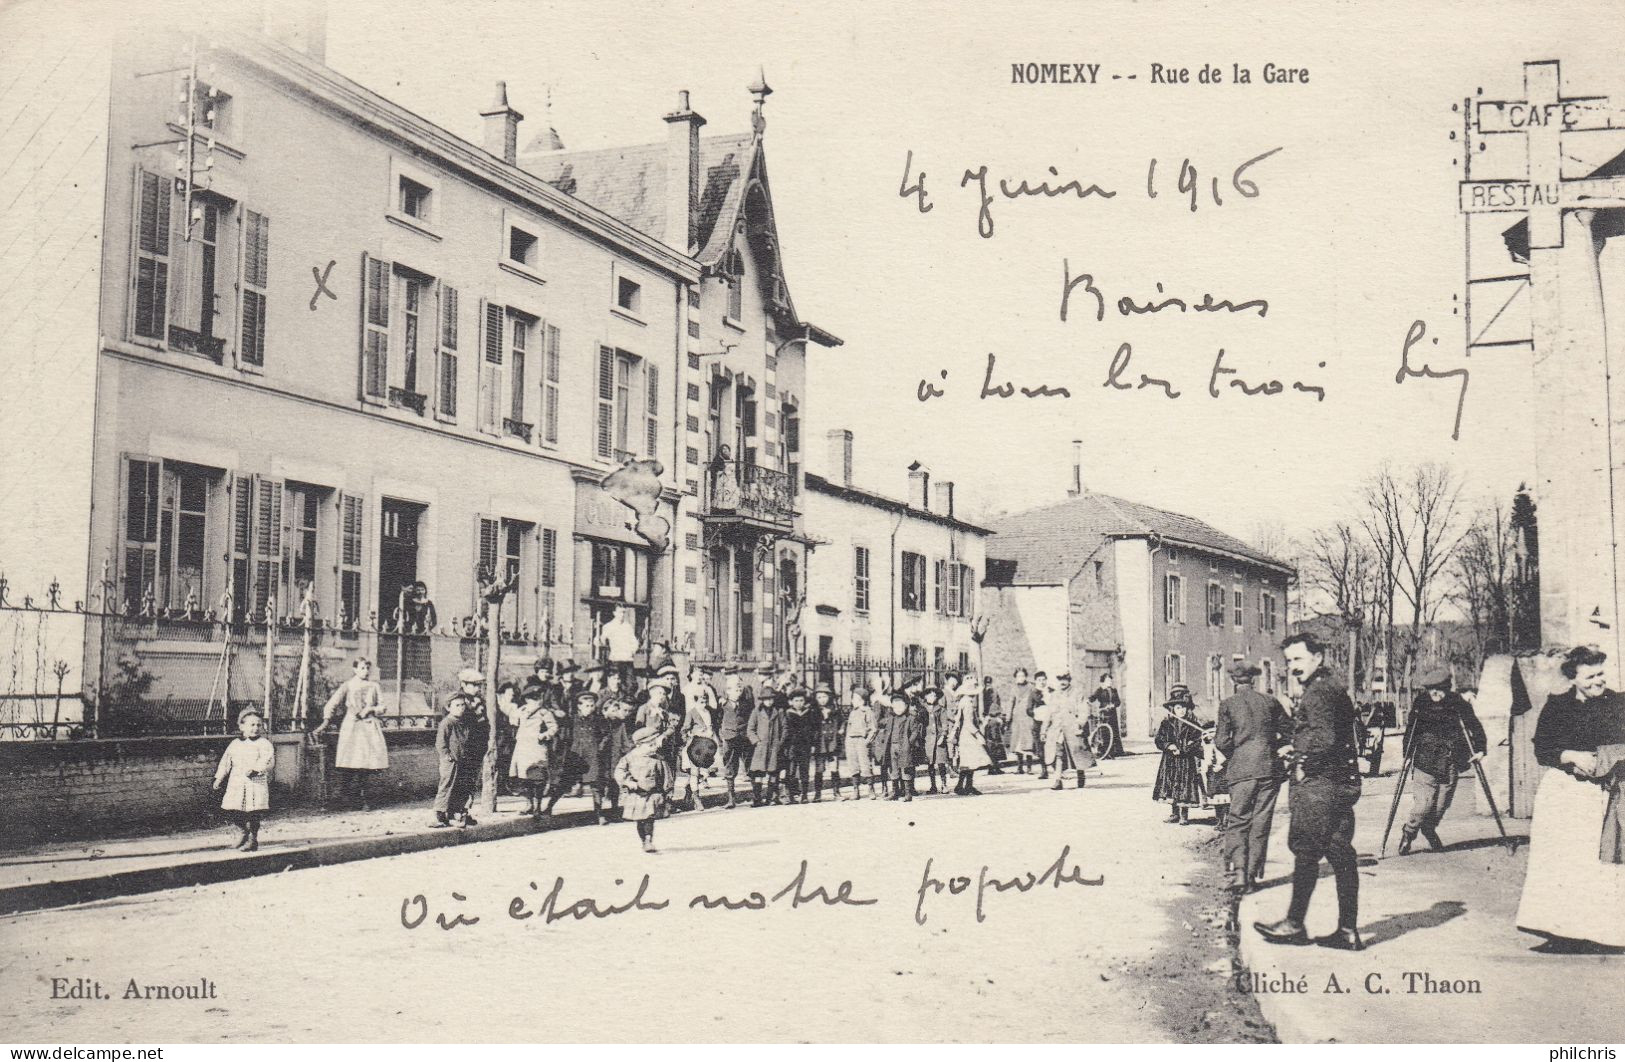 NOMEXY -- Rue de la Gare
CAFE
RESTAU
4 Juin 1916
Baisers
à tous les trois
Où était notre popote
Edit. Arnoult
Cliché A. C. Thaon
delcampe.net
philchris